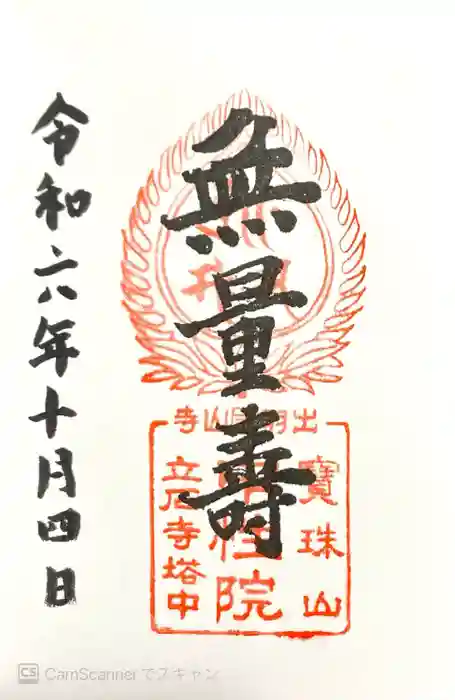 無量壽
令和六年十月四日
寶珠山
院
立石寺塔中
CS CamScannerでスキャン